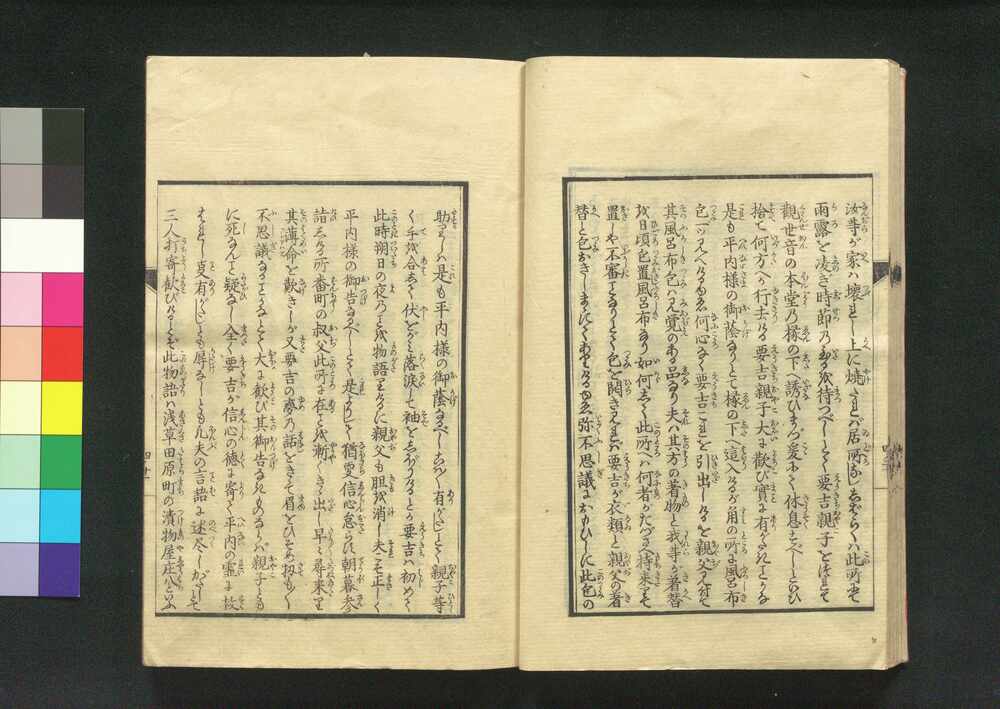 汝等が家ハ壊れし上に焼たれバ居所なししばらくハ此所にて
雨露を凌ぎ時節の至るを待つべしとて要吉親子を伴ひて
観世音の本堂の椽の下へ誘ひまづ爰にて休息すべしといひ
捨て何方へか行去ける要吉親子大に歓び実に有がたきことかな
是も平内様の御蔭なりとて椽の下へ這入けるが角の所に風呂布
包一ツ見へけるゆゑ何心なく要吉これを引出しけるを親父見付て
其風呂布包ハ見覚のある品なり夫ハ其方の着物と我等が着替
を日頃包置風呂布なり如何して此所へハ何者か持来りて
置しや不審なりとて包を開き見れバ要吉が衣類と親父の着
替と包おきしまゝにてありけるゆゑ弥不思議におもひしに此包の
助りしハ是も平内様の御蔭なるべしあら有がたしとて親子等
く手を合して伏をがミ落涙して袖をしぼりけるとか要吉ハ初めて
此時朔日の夜のことを物語りけるに親父も胆を消し夫こそ正しく
平内様の御告なるべしとて是よりして猶更信心怠らず朝暮参
詣しける所番町の叔父此所に在を漸くきゝ出し早々尋来り
其薄命を歎きしが又要吉の夢の話をきゝて眉をひそめ扨もく
不思議なることかなとて大に歓び其御告なきものならバ親子とも
に死なんこと疑なし全く要吉が信心の徳に寄て平内の霊に救
はれし事有がたしとも辱なしとも凡夫の言語に述尽しがたしとて
三人打寄歓びけるとぞ此物語ハ浅草田原町の漬物屋庄八といふ